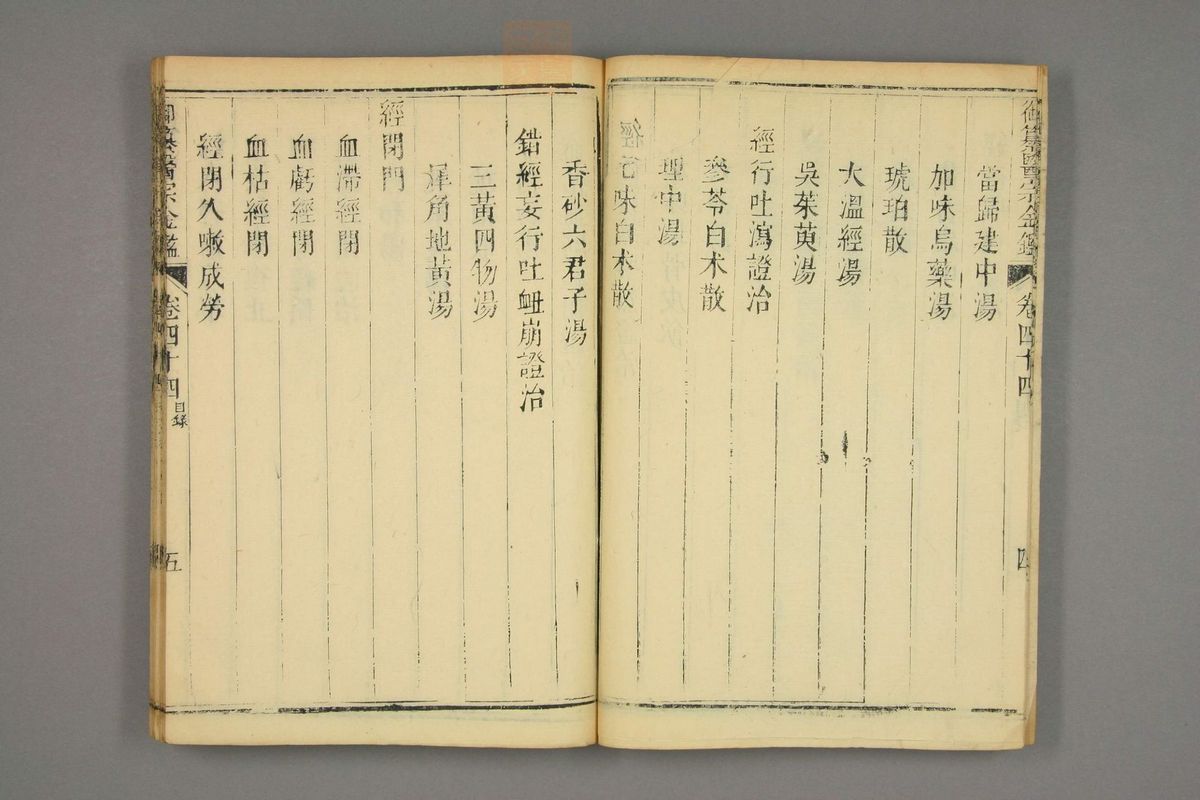 御纂醫宗金鑑 卷四十四 四
當歸建中湯
加味烏藥湯
琥珀散
大溫經湯
吳茱萸湯
經行吐瀉證治
參苓白术散
理中湯
經行味白术散
香砂六君子湯
錯經妄行吐衄崩證治
三黃四物湯
犀角地黃湯
經閉門
血滯經閉
血虧經閉
血枯經閉
經閉久嗽成勞
御纂醫宗金鑑 卷四十四 目錄 五